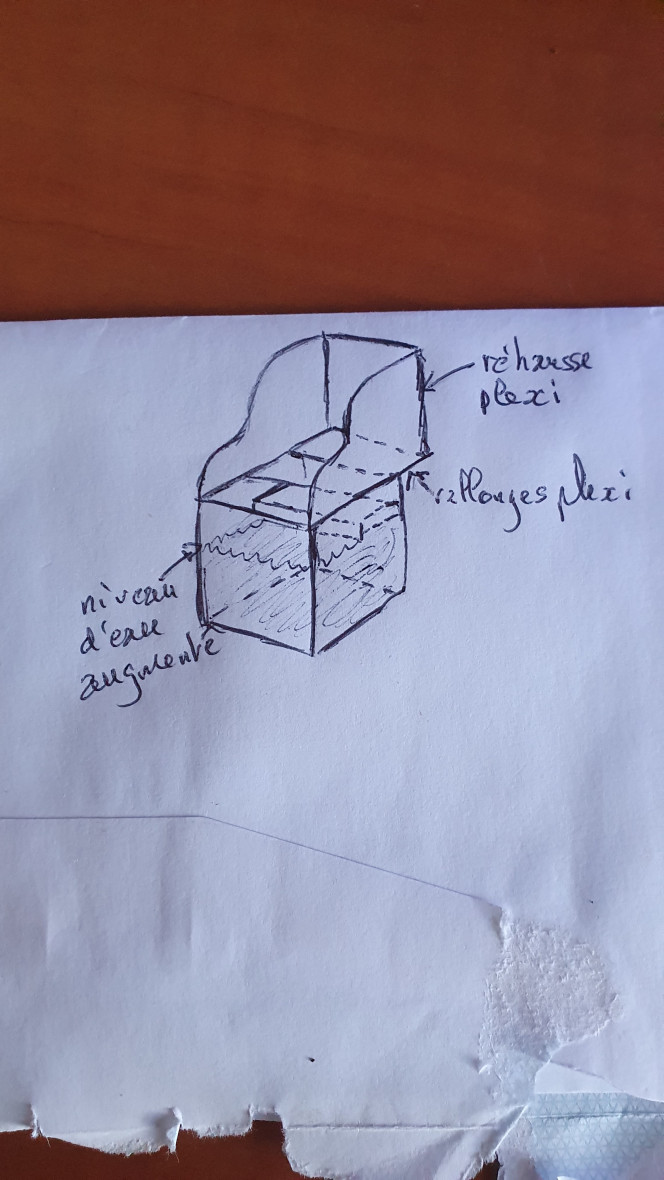 réhausse
plexi
rallonges plexi
niveau
d'eau
augmenté